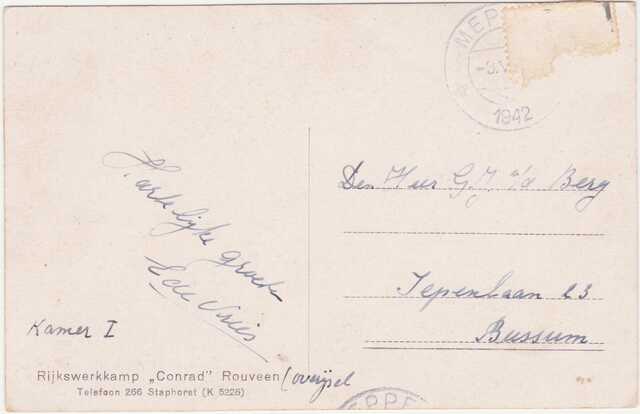 MEPP
-3.V
1942
Hartelijke groeten
E de Vries
Den Heer G.J. v/d Berg
Iepenlaan 23
Bussum
Kamer I
Rijkswerkkamp „Conrad” Rouveen / overijsel
Telefoon 266 Staphorst (K 5226)
EPPE